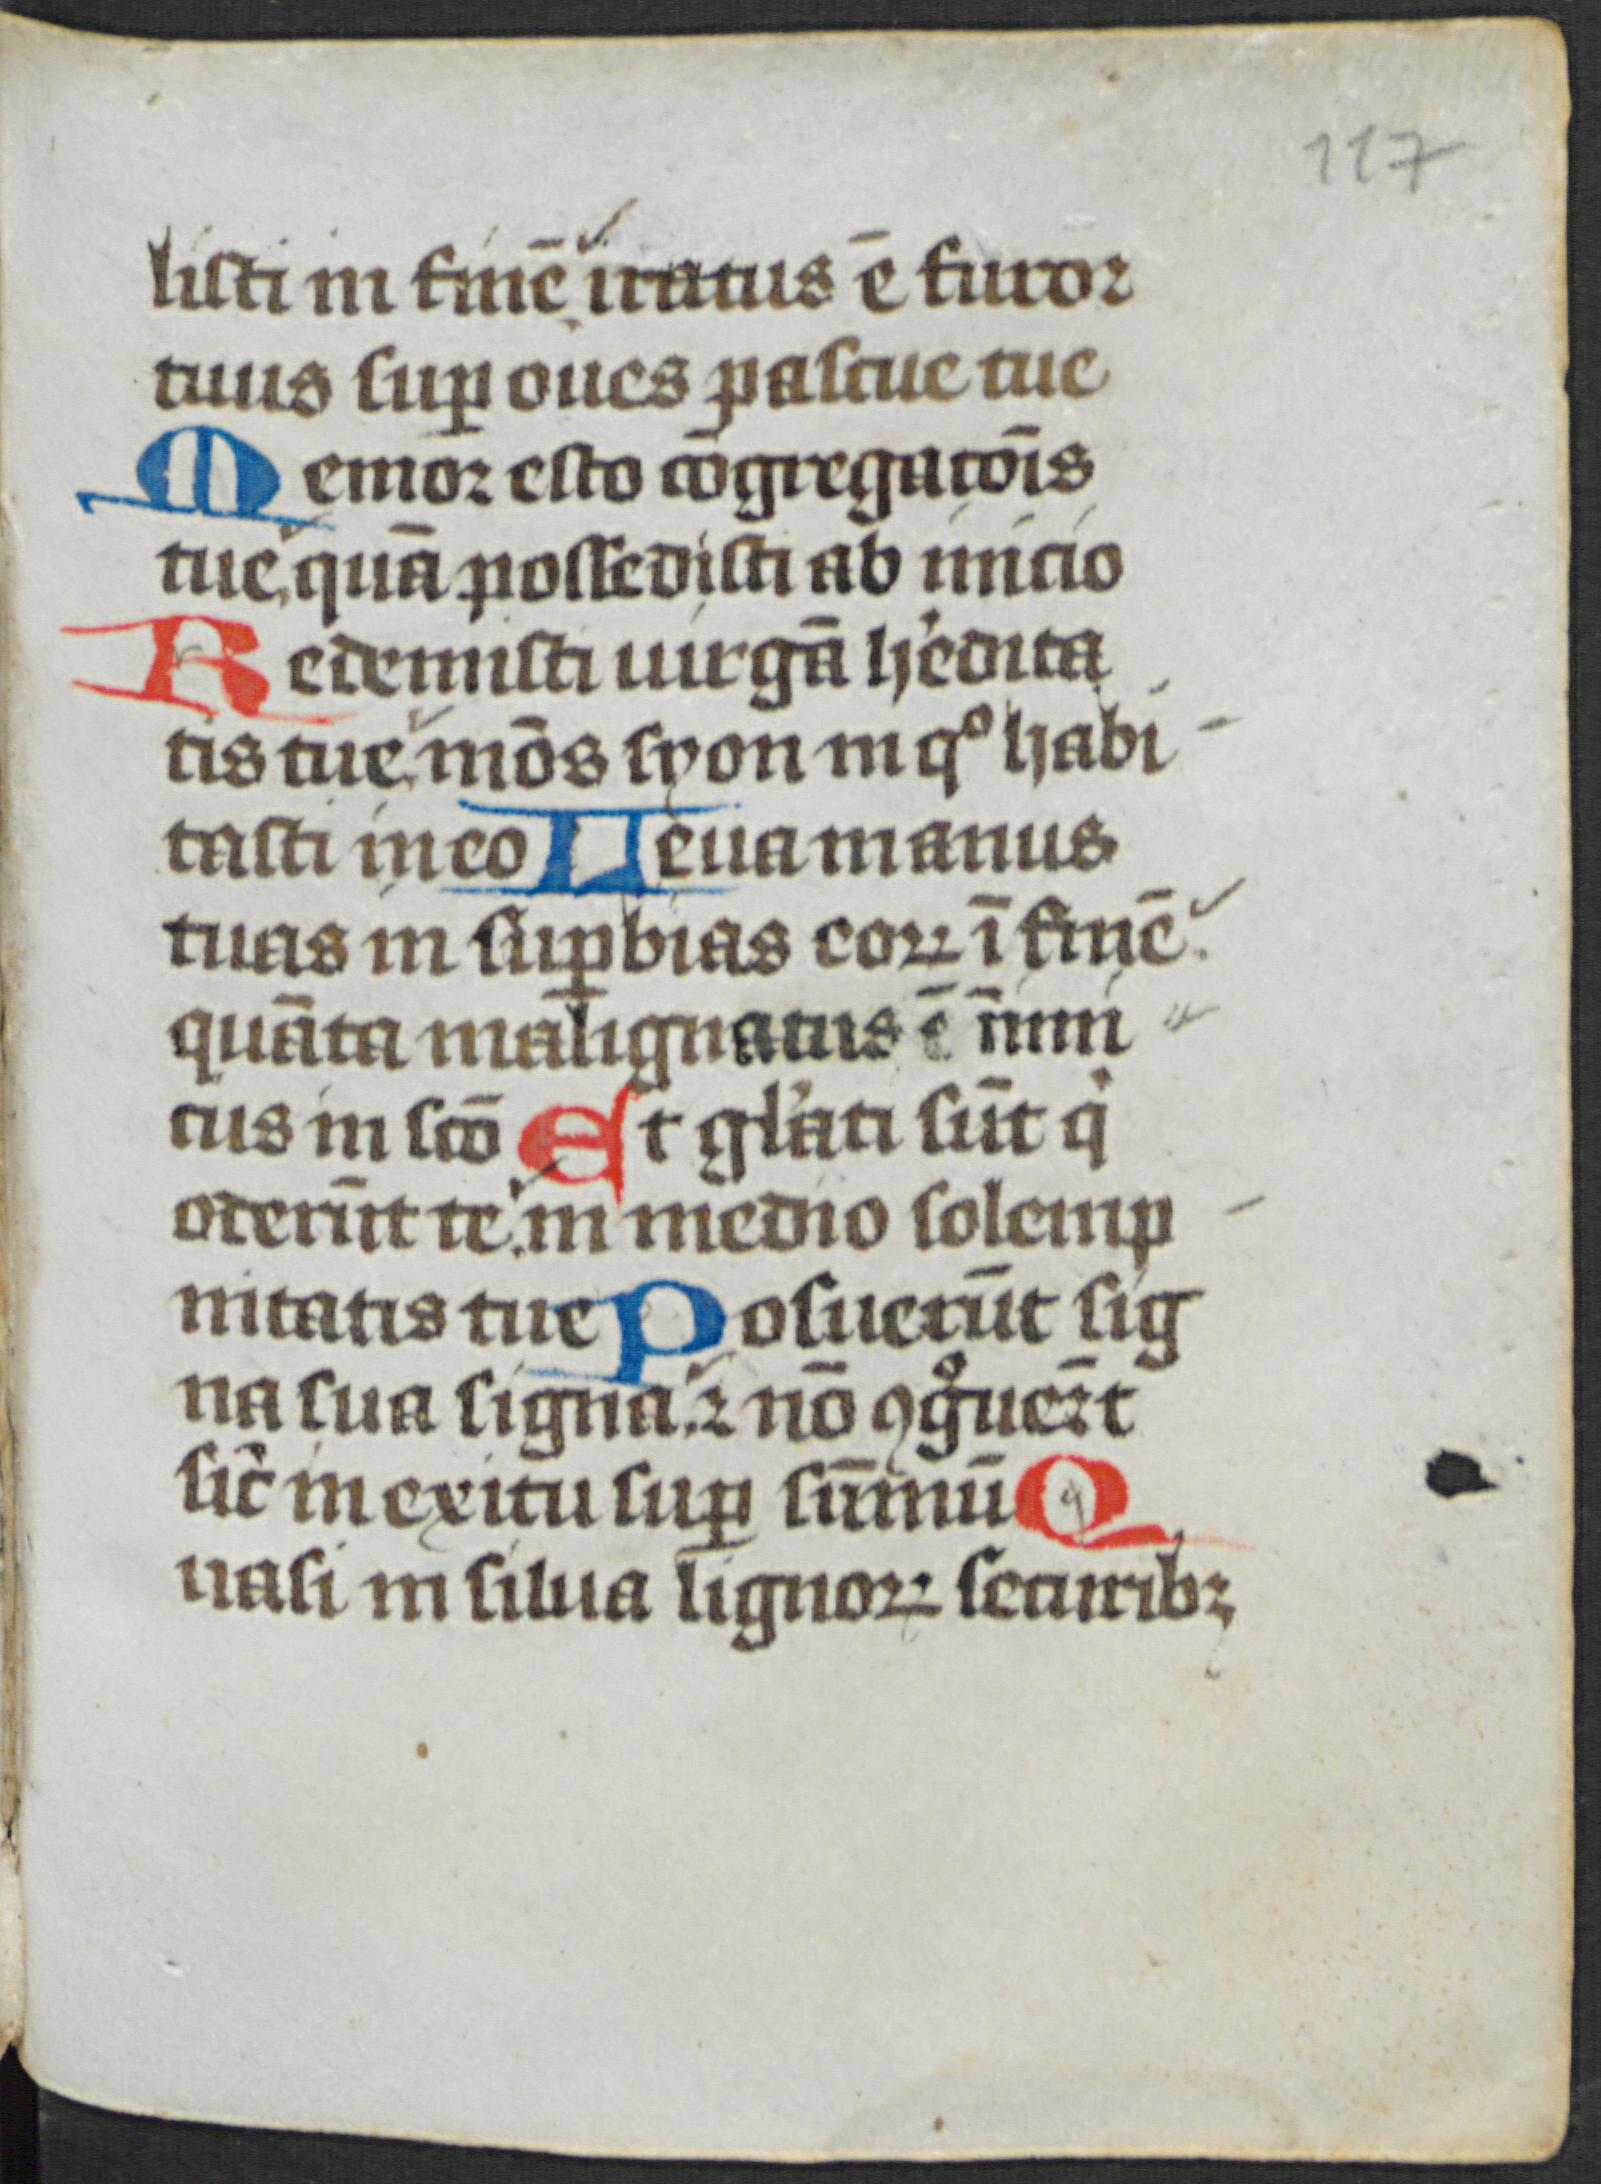 117
listi in finē iratus ē furor
tuus suꝑ oues pascue tue
Memor esto cōgregacōis
tue quā possedisti ab inicio
Redemisti uirgā h'edita
tis tue mōs syon in qͦ habi-
tasti in eo Leua manus
tuas in suꝑbias eoꝝ ī finē
quāta malignatus ē inimi
cus in scō Et gl'ati sūt qⁱ
oderūt te in medio solemp-
nitatis tue Posuerūt sig
na sua signa ⁊ nō ꝯgͦuerūt
sic̄ in exitu suꝑ sūmū Q
uasi in silua lignoꝝ securibꝫ